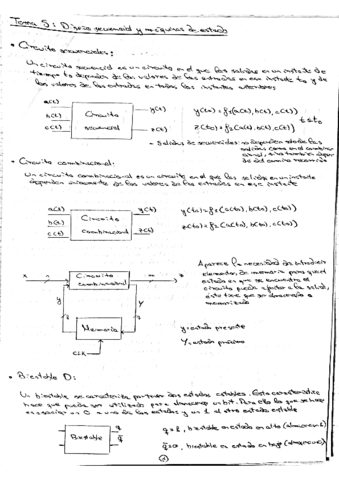 Tema 5: Diseño secuencial y máquinas de estado
• Circuitos secuenciales:
Un circuito secuencial es un circuito en el que las salidas en un instante de
tiempo to dependen de los valores de las entradas en ese instante to y de
los valores de las entradas en todos los instantes anteriores
a(t)
b(t)
c(t)
Circuito
secuencial
y(t)
z(t)
y(to) = f1(a(t), b(t), c(t))
z(to) = f2(a(t), b(t), c(t))
t≤to
- Salidas de secuenciales no dependen solo de las
entradas como en el combinacional
actual, sino también
del camino recorrido
• Circuito combinacional:
Un circuito combinacional es un circuito en el que las salidas en un instante
dependen únicamente de los valores de las entradas en ese instante
a(t)
b(t)
c(t)
Circuito
combinacional
y(t)
z(t)
y(to) = f1(a(to), b(to), c(to))
z(to) = f2(a(to), b(to), c(to))
x
Circuito
combinacional
z
y
Y
Memoria
CLK
Aparece la necesidad de introducir
elementos de memoria para que el
estado en que se encuentra el
circuito pueda a la salida,
esto tiene que ser almacenado o
memorizado
y: estado presente
Y: estado próximo
• Biestable D:
Un biestable se caracteriza por tener dos estados estables. Esta característica
hace que pueda ser utilizado para almacenar un bit. Para ello lo que se hace
es asociar un 0 a uno de los estados y un 1 al otro estado estable
Biestable
q
q̄
q = 1, biestable en estado en alto (almacena 1)
q = 0, biestable en estado en bajo (almacena 0)
1